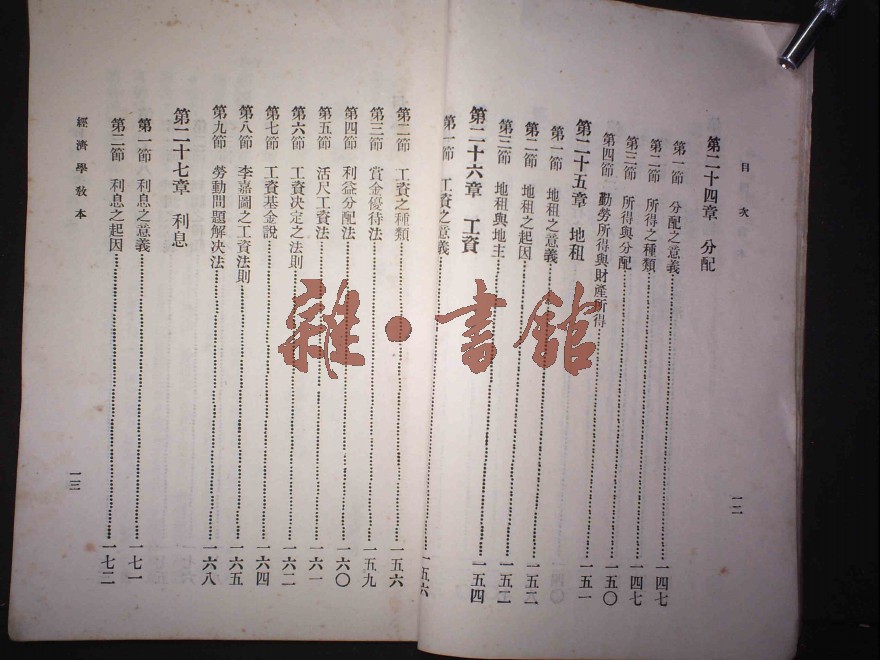 目次
第二十四章 分配
第一節 分配之意義……一四七
第二節 所得之種類……一四七
第三節 所得與分配……一五〇
第四節 勤勞所得與財產所得……一五一
第二十五章 地租
第一節 地租之意義
第二節 地租之起因……一五二
第三節 地租與地主……一五三
第二十六章 工資……一五四
第一節 工資之意義……一五六
一二
第二節 工資之種類……一五六
第三節 賞金優待法……一五九
第四節 利益分配法……一六〇
第五節 活尺工資法……一六一
第六節 工資決定之法則……一六二
第七節 工資基金說……一六四
第八節 李嘉圖之工資法則……一六五
第九節 勞動問題解決法……一六八
第二十七章 利息
第一節 利息之意義……一七一
第二節 利息之起因……一七二
經濟學敎本
一三
雜·書館